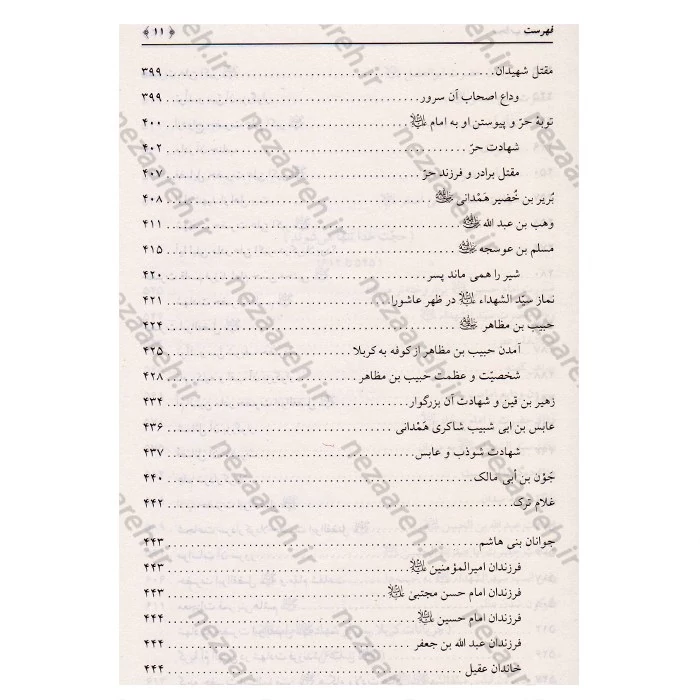 فهرست ﴿ ۱۱ ﴾
مقتل شهیدان ........ ۳۹۹
وداع اصحاب آن سرور ........ ۳۹۹
توبهٔ حرّ و پیوستن او به امام علیه‌السلام ........ ۴۰۰
شهادت حرّ ........ ۴۰۲
مقتل برادر و فرزند حرّ ........ ۴۰۷
بُریر بن خُضیر هَمْدانی ........ ۴۰۸
وهب بن عبد الله ........ ۴۱۱
مسلم بن عوسجه ........ ۴۱۵
شیر را همی ماند پسر ........ ۴۲۰
نماز سیّد الشهداء علیه‌السلام در ظهر عاشورا ........ ۴۲۱
حبیب بن مظاهر ........ ۴۲۴
آمدن حبیب بن مظاهر از کوفه به کربلا ........ ۴۲۵
شخصیّت و عظمت حبیب بن مظاهر ........ ۴۲۸
زهیر بن قین و شهادت آن بزرگوار ........ ۴۳۴
عابس بن ابی شبیب شاکری هَمْدانی ........ ۴۳۶
شهادت شوذب و عابس ........ ۴۳۷
جَوْن بن أبی مالک ........ ۴۴۰
غلام ترک ........ ۴۴۲
جوانان بنی هاشم ........ ۴۴۳
فرزندان امیرالمؤمنین علیه‌السلام ........ ۴۴۳
فرزندان امام حسن مجتبی علیه‌السلام ........ ۴۴۳
فرزندان امام حسین علیه‌السلام ........ ۴۴۴
فرزندان عبد الله بن جعفر ........ ۴۴۴
خاندان عقیل ........ ۴۴۴
nezaareh.ir